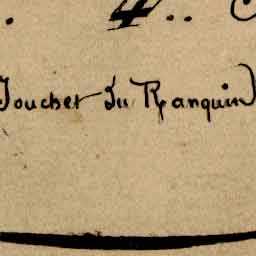 . 4..
Touchet Du Ranquin)